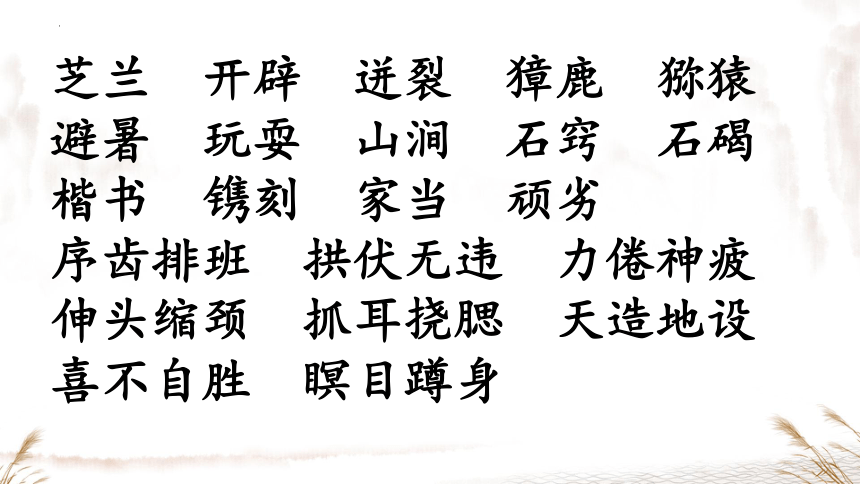 芝兰 开辟 迸裂 獐鹿 猕猿
避暑 玩耍 山涧 石窍 石碣
楷书 镌刻 家当 顽劣
序齿排班 拱伏无违 力倦神疲
伸头缩颈 抓耳挠腮 天造地设
喜不自胜 瞑目蹲身